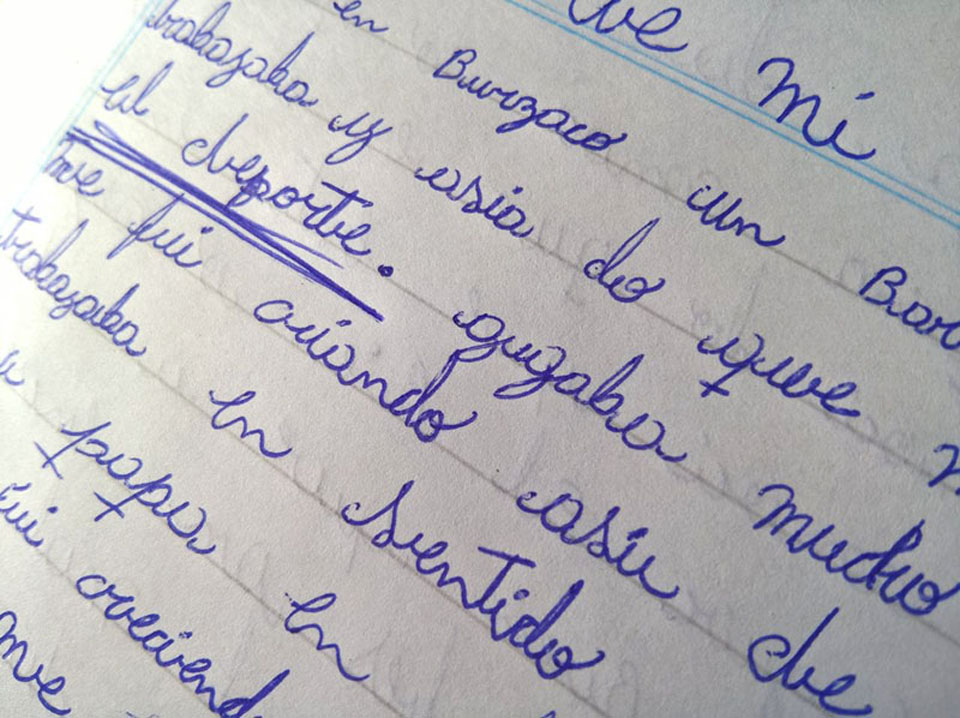 de mi
en Burzaco un Bar
trabazaba y asia do que
al deporte. guzaba mucho
me fui criando asia de
trabazaba en sentido
papa en
fui creciend
me